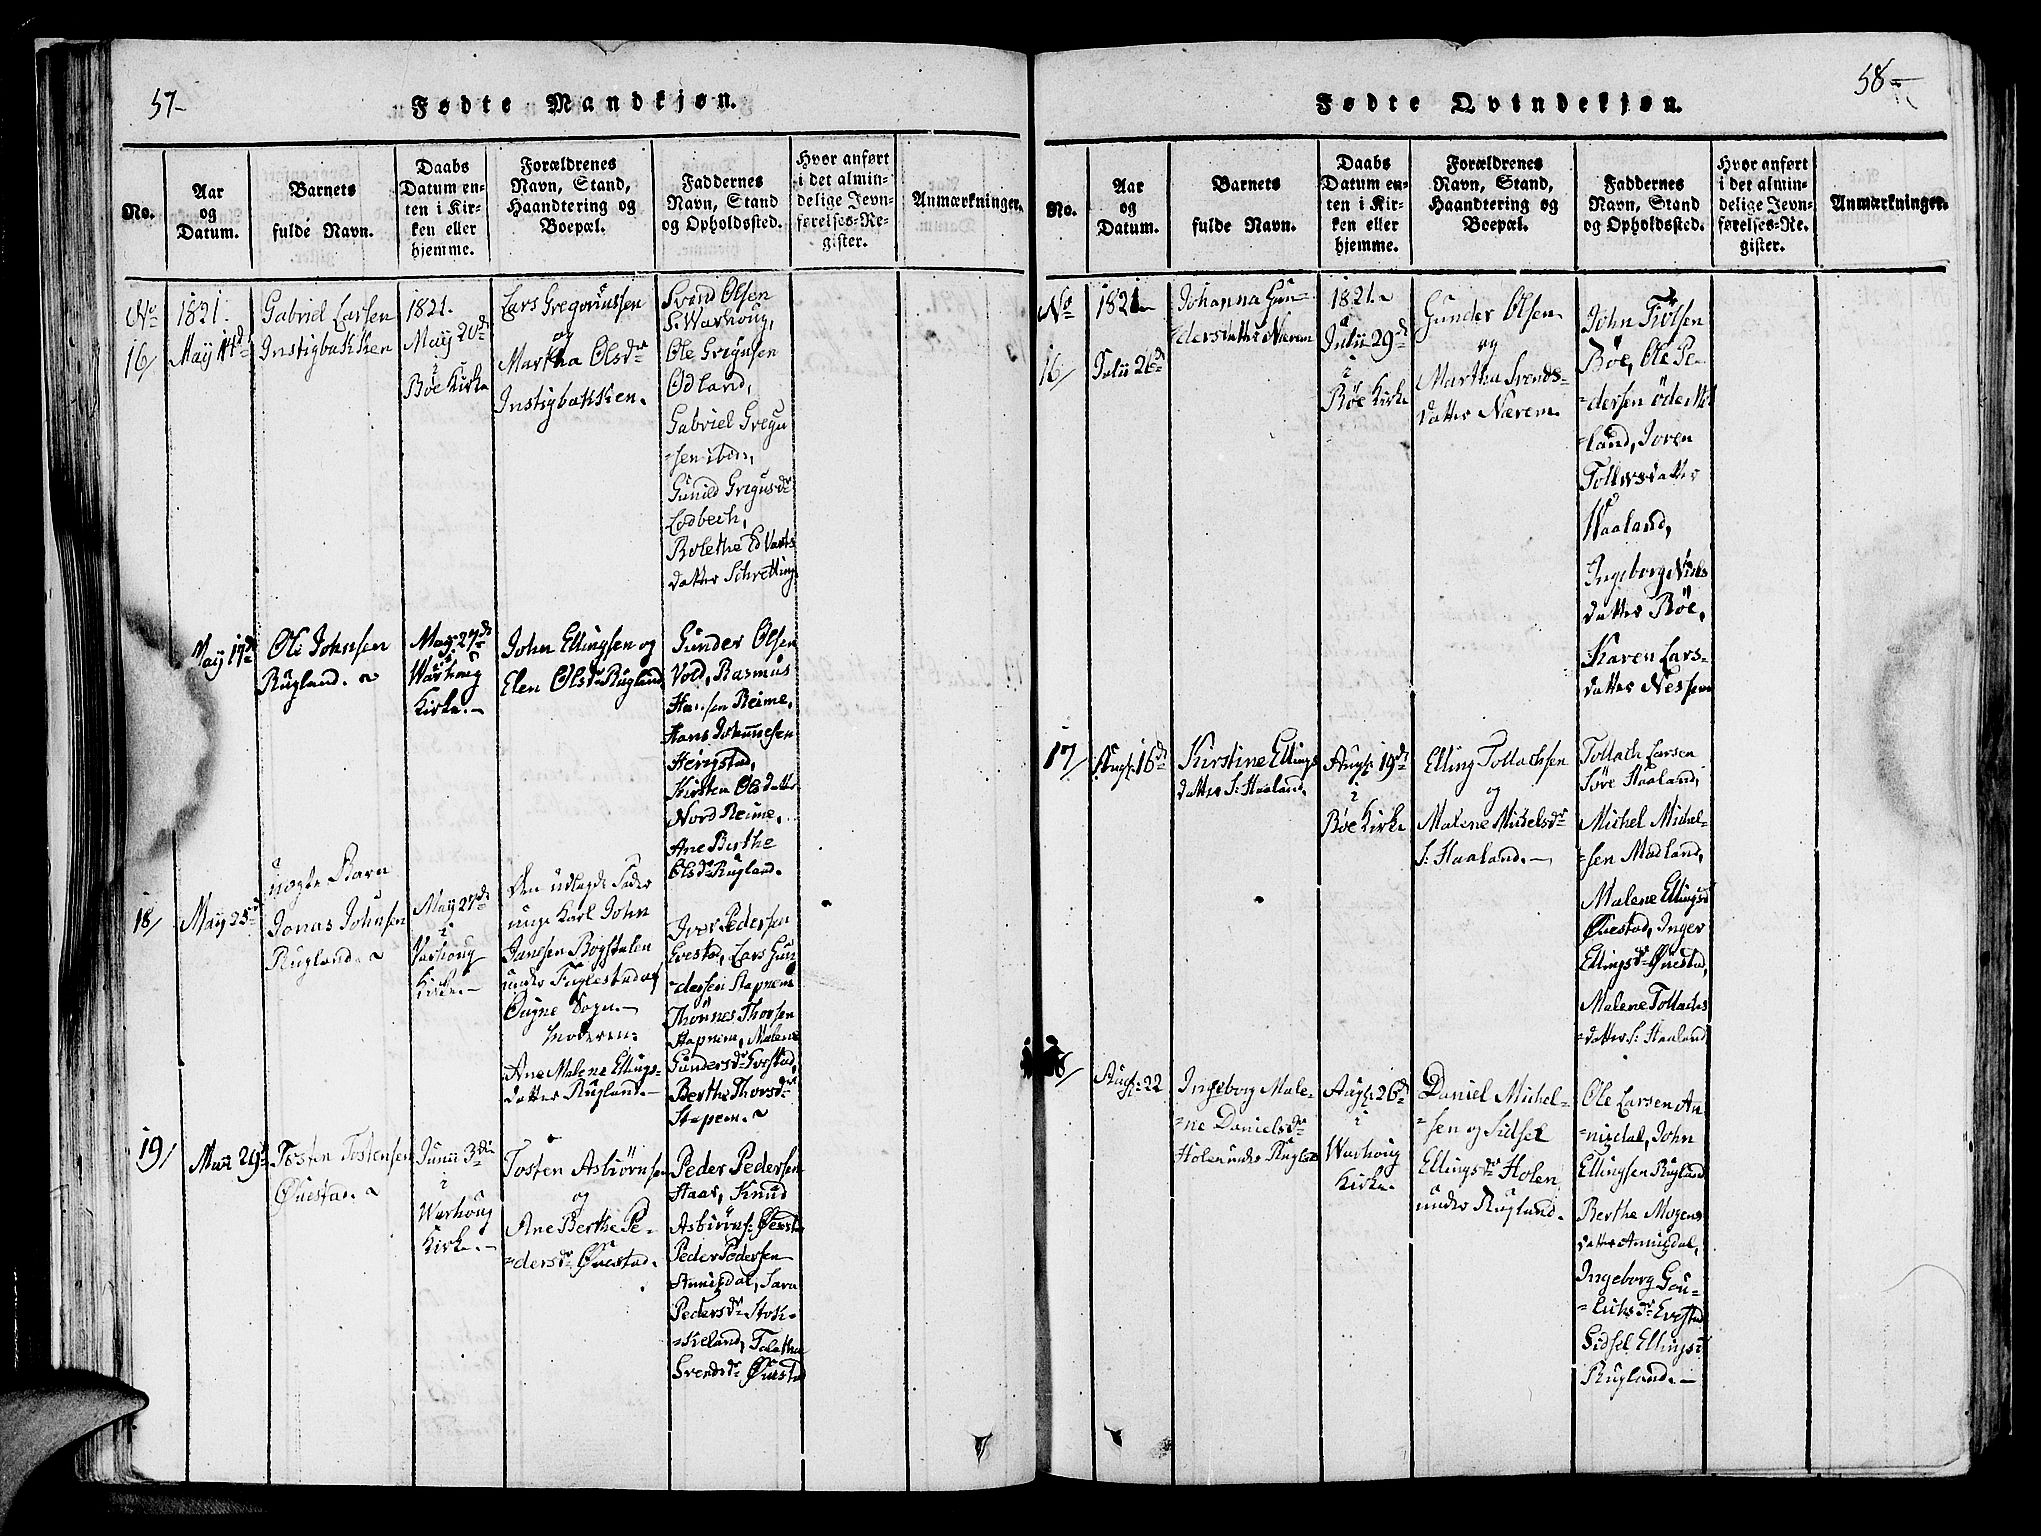 57-
Fødte Mandkjøn.
No.
Aar
og
Datum.
Barnets
fulde Navn.
Daabs
Datum en-
ten i Kir-
ken eller
hjemme.
Forældrenes
Navn, Stand,
Haandtering og
Boepæl.
Faddernes
Navn, Stand
og Opholdssted.
Hvor anført
i det almin-
delige Jevn-
førelses-Re-
gister.
Anmærkninger.
No
16/
1821.
May 14d
Gabriel Larsen
Instigbakken
1821.
May 20d
i
Bøe Kirke
Lars Gregoriussen
og
Martha Olsdr
Instigbakken.
Svend Olsen
S. Warhoug,
Ole Gregusen
Ødland,
Gabriel Gregu
=sen ibdm,
Gunild Gregusdr
Lodbech,
Bolethe Edvarts
datter Schretting
May 17d
Ole Johnsen
Rugland.
May 27d
i
Warhoug
Kirke.-
John Ellingsen og
Elen Olsdr Rugland
Gunder Olsen
Vold, Rasmus
Hansen Reime,
Hans Johannesen
Herigstad,
Kirsten Olsdatter
Nord Reime,
Ane Berthe
Olsdr Rugland.
18/
May 25d
uægte Barn
Jonas Johnsen
Rugland.
May 27d
i
Varhoug
Kirke.-
Den udlagde Fader
unge Karl John
Janssen Bogstalen
under Fuglestad af
Øugne Sogn.-
Moderen:
Ane Malene Ellings-
datter Rugland.-
Iver Pedersen
Evestad, Lars Gun
=dersen Stapnem
Thonnes Thorsen
Stapnem, Malene
Gundersdr Evestad,
Berthe Thorsdr
Stapem.
19/
Maii 29d
Tosten Tostensen
Øvestad.
Junii 3d
i
Warhoug
Kirke.-
Tosten Asbiørnsen
og
Ane Berthe Pe-
=dersdr Øvestad.
Peder Pedersen
Haar, Knud
Asbiørns: Øvestad
Peder Pedersen
Annigdal, Sara
Pedersdr Stok-
=keland, Talatha
Svendsdr Øvestad
58-
Fødte Qvindekjøn.
No.
Aar
og
Datum.
Barnets
fulde Navn.
Daabs
Datum en-
ten i Kir-
ken eller
hjemme.
Forældrenes
Navn, Stand,
Haandtering og
Boepæl.
Faddernes
Navn, Stand
og Opholdssted.
Hvor anført
i det almin-
delige Jevn-
førelses-Re-
gister.
Anmærkninger.
No
16/
1821
Julii 26d
Johanna Gun-
dersdatter Nærem
1821.
Julii 29d
i
Bøe Kirke
Gunder Olsen
og
Martha Svends-
datter Nærem.
John
Bøe, Ole Pe-
=dersen øde Mel
=land, Joren
Tollevsdatter
Waaland,
Ingeborg Niels
datter Bøe,
Karen Lars-
datter Nessem
17/
Augs: 16d
Kirstine Ellings
datter S: Haaland.
Augs: 19d
i
Bøe Kirke
Elling Tollachsen
og
Malene Michelsdr
S: Haaland.-
Tollach Larsen
Søre Haaland,
Michel Michel-
=sen Madland,
Malene Ellingsd
Øvestad, Inger
Ellingsdr Øvestad,
Malene Tollachs
=datter S: Haaland
18/
Augs: 22
Ingeborg Male-
=ne Danielsdr
Holen under Rugland
Augs: 26d
i
Warhoug
Kirke.
Daniel Michel-
=sen og Sidsel
Ellingsdr Holen
under Rugland.
Ole Larsen An
=nigdal, John
Ellingsen Rugland
Berthe Mogens
datter Annigdal,
Ingeborg Gou-
=lichsdr Evestad
Sidsel Ellingsd
Rugland.-